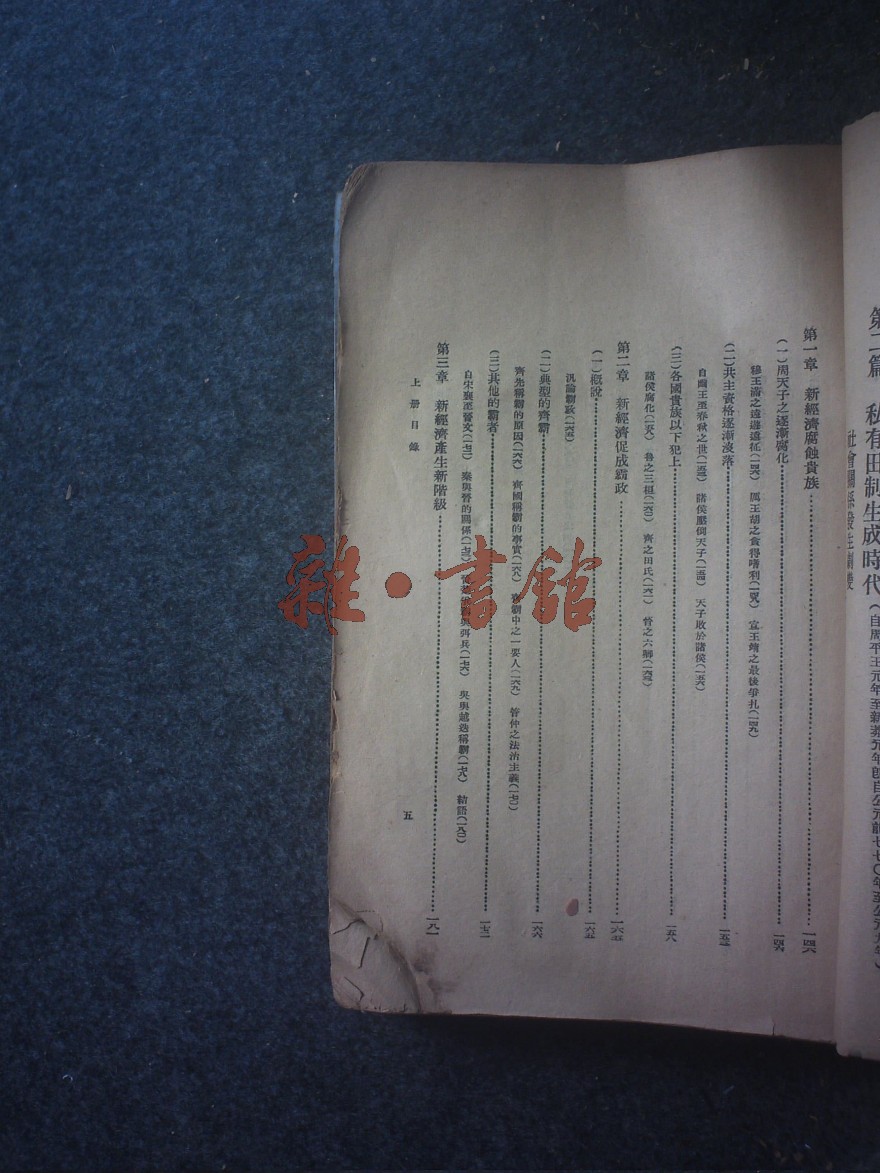 第二篇　私有田制生成時代（自周平王元年至新莽元年卽自公元前七七〇年至公元九年）
社會關係發生劇變
第一章　新經濟腐蝕貴族……一四六
（一）周天子之逐漸腐化……一四六
穆王滿之遠遊遠征（一四六）　厲王胡之貪得嗜利（一四八）　宣王靖之最後掙扎（一四九）
（二）共主資格逐漸沒落……一五二
諸侯壓倒天子（一五四）　天子敗於諸侯（一五六）
（三）各國貴族以下犯上……一五八
諸侯腐化（一五八）　魯之三桓（一六〇）　齊之田氏（一六一）　晉之六卿（一六三）
第二章　新經濟促成霸政……一六五
（一）概說……一六五
汎論霸政（一六五）
（二）典型的齊霸……一六六
齊先稱霸的原因（一六六）　齊國稱霸的事實（一六八）　齊霸中之一要人（一六九）　管仲之法治主義（一七〇）
（三）其他的霸者……一七二
自宋襄至晉文（一七二）　秦與晉的關係（一七三）　與弭兵（一七六）　吳與越迭稱霸（一七八）　結語（一八〇）
第三章　新經濟產生新階級……一八一
上册目錄
五
雜·書館